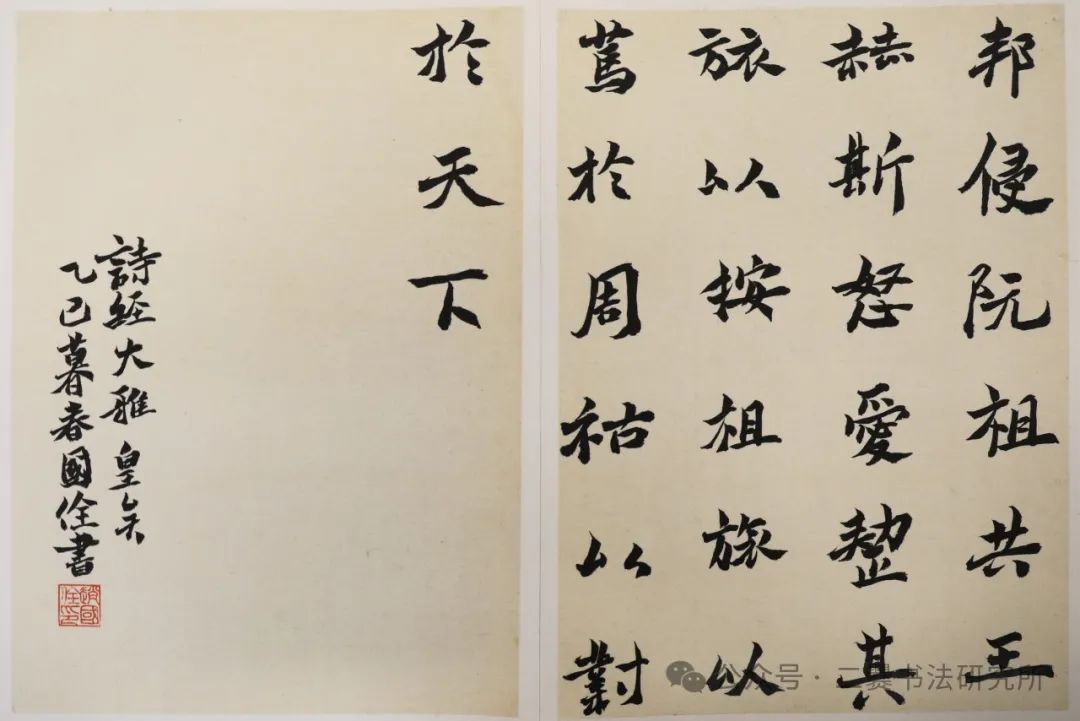 邦侵阮祖共王
赫斯怒愛整其
旅以按祖旅以
篤於周祜以對
於天下
詩經大雅 皇矣
乙巳暮春國佺書
趙國佺印
公众号 · 书法研究所